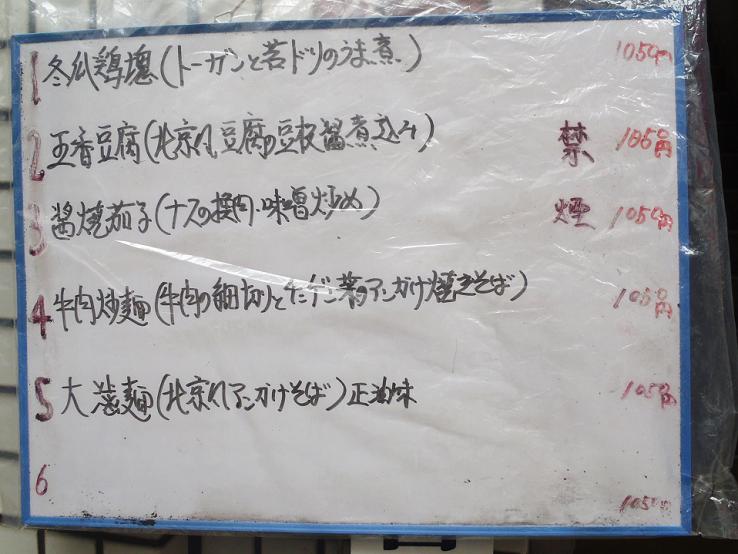 1 冬瓜鶏塊(トーガンと若ドリのうま煮) 1050円
2 五香豆腐(北京風豆腐の豆板醤煮込み) 禁 1050円
3 醤焼茄子(ナスの挽肉・味噌炒め) 煙 1050円
4 牛肉炒麺(牛肉の細切りとチンゲン菜のアンかけ焼きそば) 1050円
5 大滷麺(北京風アンかけそば)正油味 1050円
6 1050円